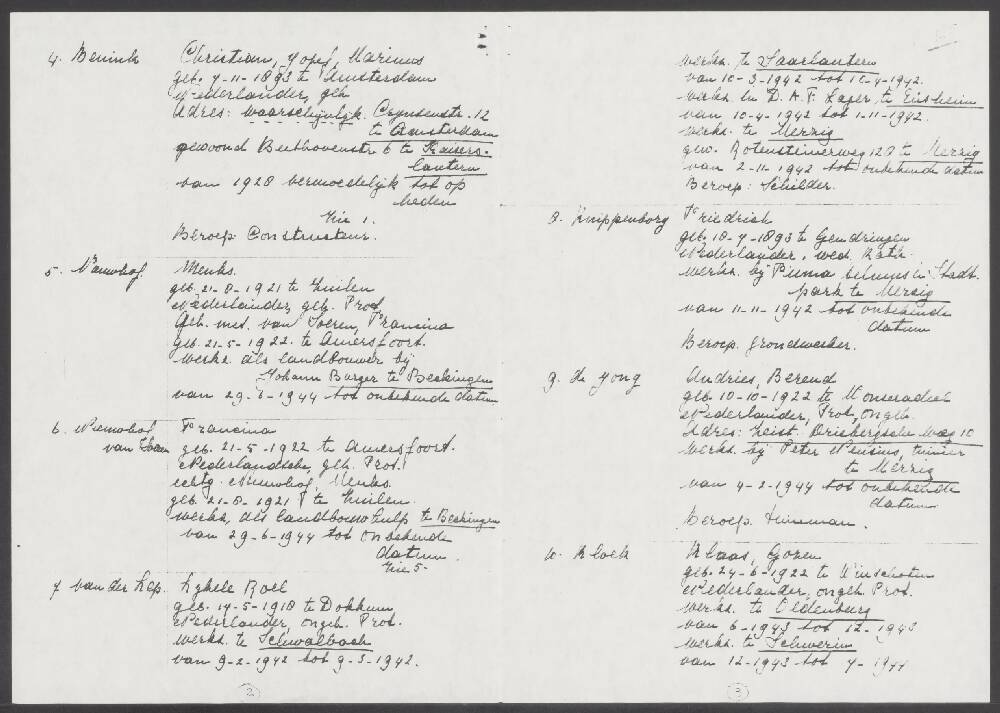 4. Benink Christiaan, Josef, Marinus
geb. 7-11-1893 te Amsterdam
Nederlander, geh.
Adres: waarschijnlijk Crynssenstr. 12
te Amsterdam
gewoond Beethovenstr 6 te Keisers-
lautern
van 1928 vermoedelijk tot op
heden
Zie 1.
Beroep Constructeur.
5. Nieuwhof Menks.
geb. 21-8-1921 te Zuilen
Nederlander, geh. Prot.
Geh. met. van Toeren, Francina
geb. 21-5-1922 te Amersfoort.
werkz. als landbouwer bij
Johann Burger te Beckingen
van 29-6-1944 tot onbekende datum
6. Nieuwhof Francina
van geb. 21-5-1922 te Amersfoort.
Nederlandsche, geh. Prot.
echtg. Nieuwhof, Menks.
geb. 21-8-1921 te Zuilen.
werkz. als landbouwhulp te Beckingen
van 29-6-1944 tot onbekende
datum.
Zie 5-
7 van der Kep. Lykele Roel
geb. 14-5-1918 te Dokkum
Nederlander, ongeh. Prot.
werkz. te Schwalbach
van 9-2-1942 tot 9-3-1942.
2
werkz. te Saarlautern
van 10-3-1942 tot 10-4-1942.
werkz. in D.A.F. Lager te Ensheim
van 10-4-1942 tot 1-11-1942.
werkz. te Merzig
gew. Rotensteinerweg 120 te Merzig
van 2-11-1942 tot onbekende datum
Beroep: Schilder.
8. Knippenborg Friedrich
geb. 18-7-1893 te Gendringen
Nederlander, wed. Kath.
werkz. bij Firma in Stadt-
park te Merzig
van 11-11-1942 tot onbekende
datum
Beroep. grondwerker.
9. de Jong Andries, Berend
geb. 10-10-1922 te Wonseradeel
Nederlander, Prot, ongeh.
Adres: Zeist. Driebergsche weg 10
Werkz. bij Peter tuinier
te Merzig
van 4-2-1944 tot onbekende
datum
Beroep Tuinman.
10. Kloek Klaas, Gozen
geb. 24-6-1922 te Winschoten
Nederlander, ongeh. Prot.
werkz. te Oldenburg
van 6-1943 tot 12-1943
werkz. te Schwerin
van 12-1943 tot 4-1944
3